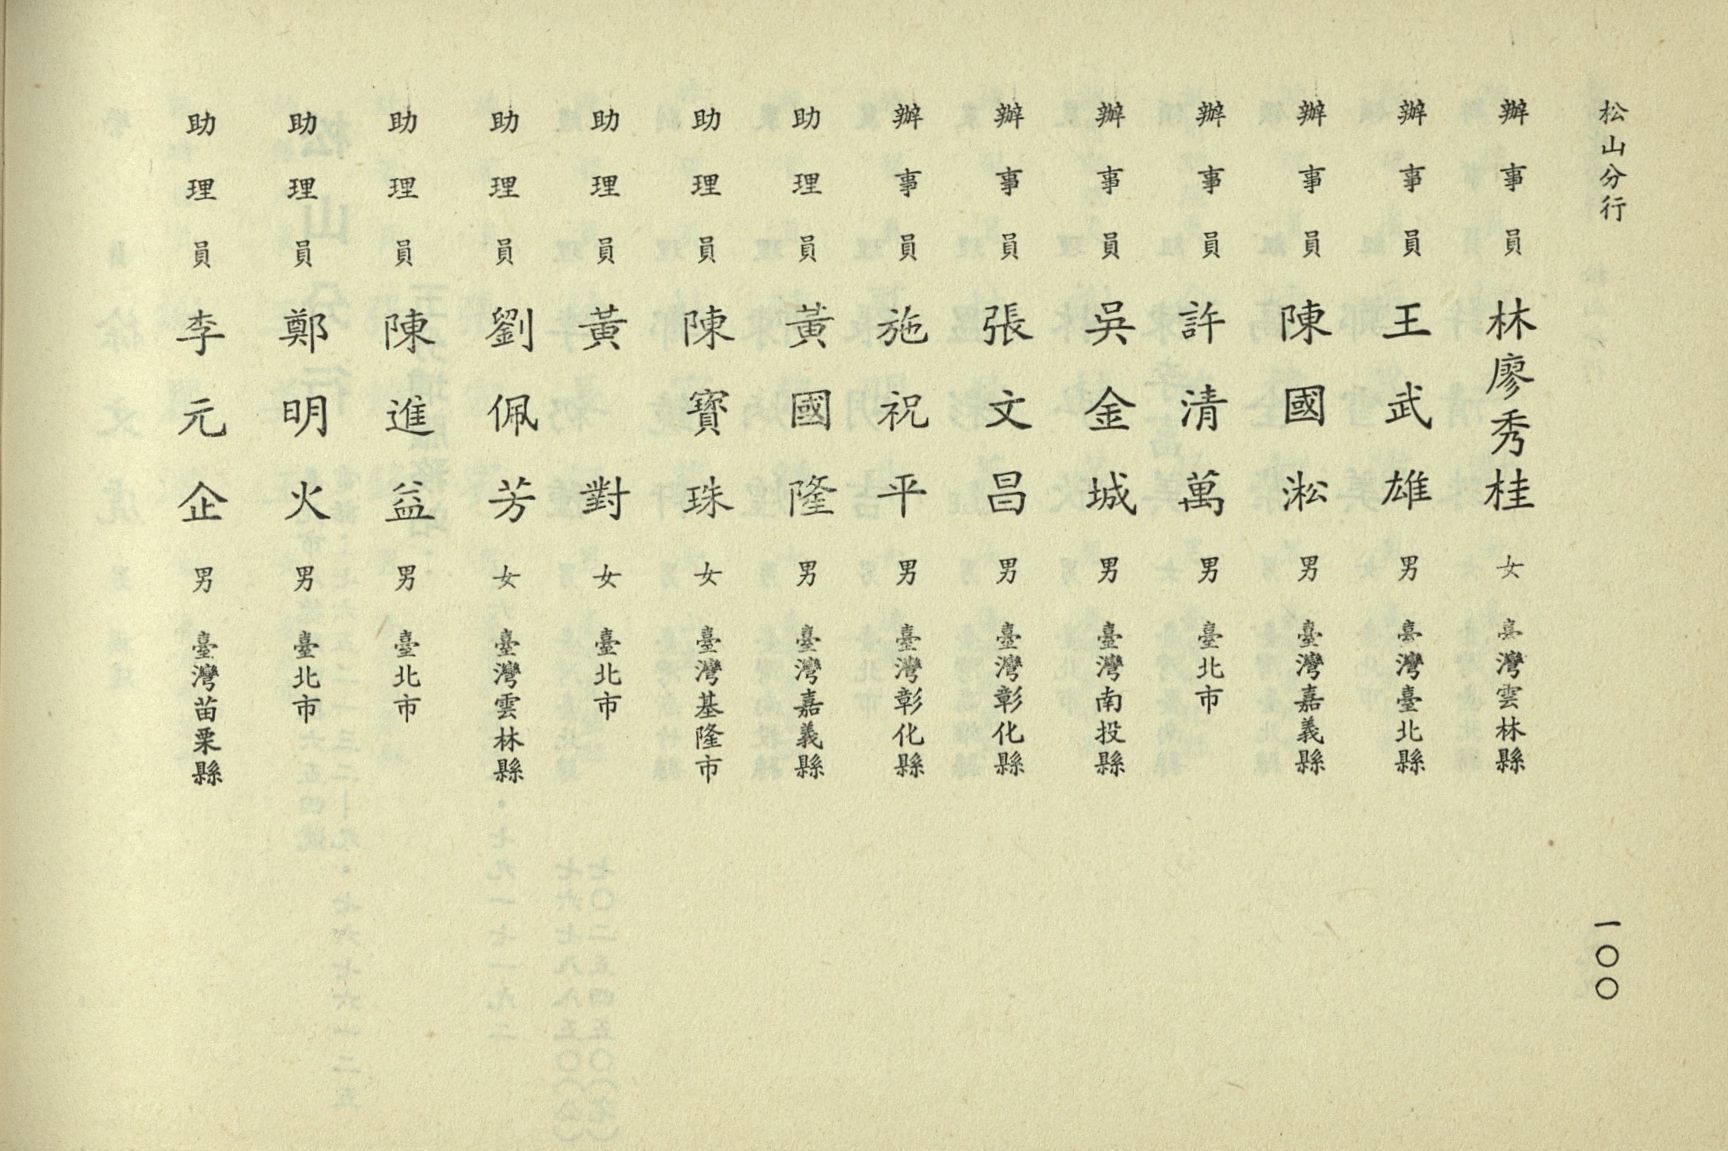 松山分行
一〇〇
辦事員 林廖秀桂 女 臺灣雲林縣
辦事員 王武雄 男 臺灣臺北縣
辦事員 陳國淞 男 臺灣嘉義縣
辦事員 許清萬 男 臺北市
辦事員 吳金城 男 臺灣南投縣
辦事員 張文昌 男 臺灣彰化縣
辦事員 施祝平 男 臺灣彰化縣
助理員 黃國隆 男 臺灣嘉義縣
助理員 陳寶珠 女 臺灣基隆市
助理員 黃對 女 臺北市
助理員 劉佩芳 女 臺灣雲林縣
助理員 陳進益 男 臺北市
助理員 鄭明火 男 臺北市
助理員 李元企 男 臺灣苗栗縣